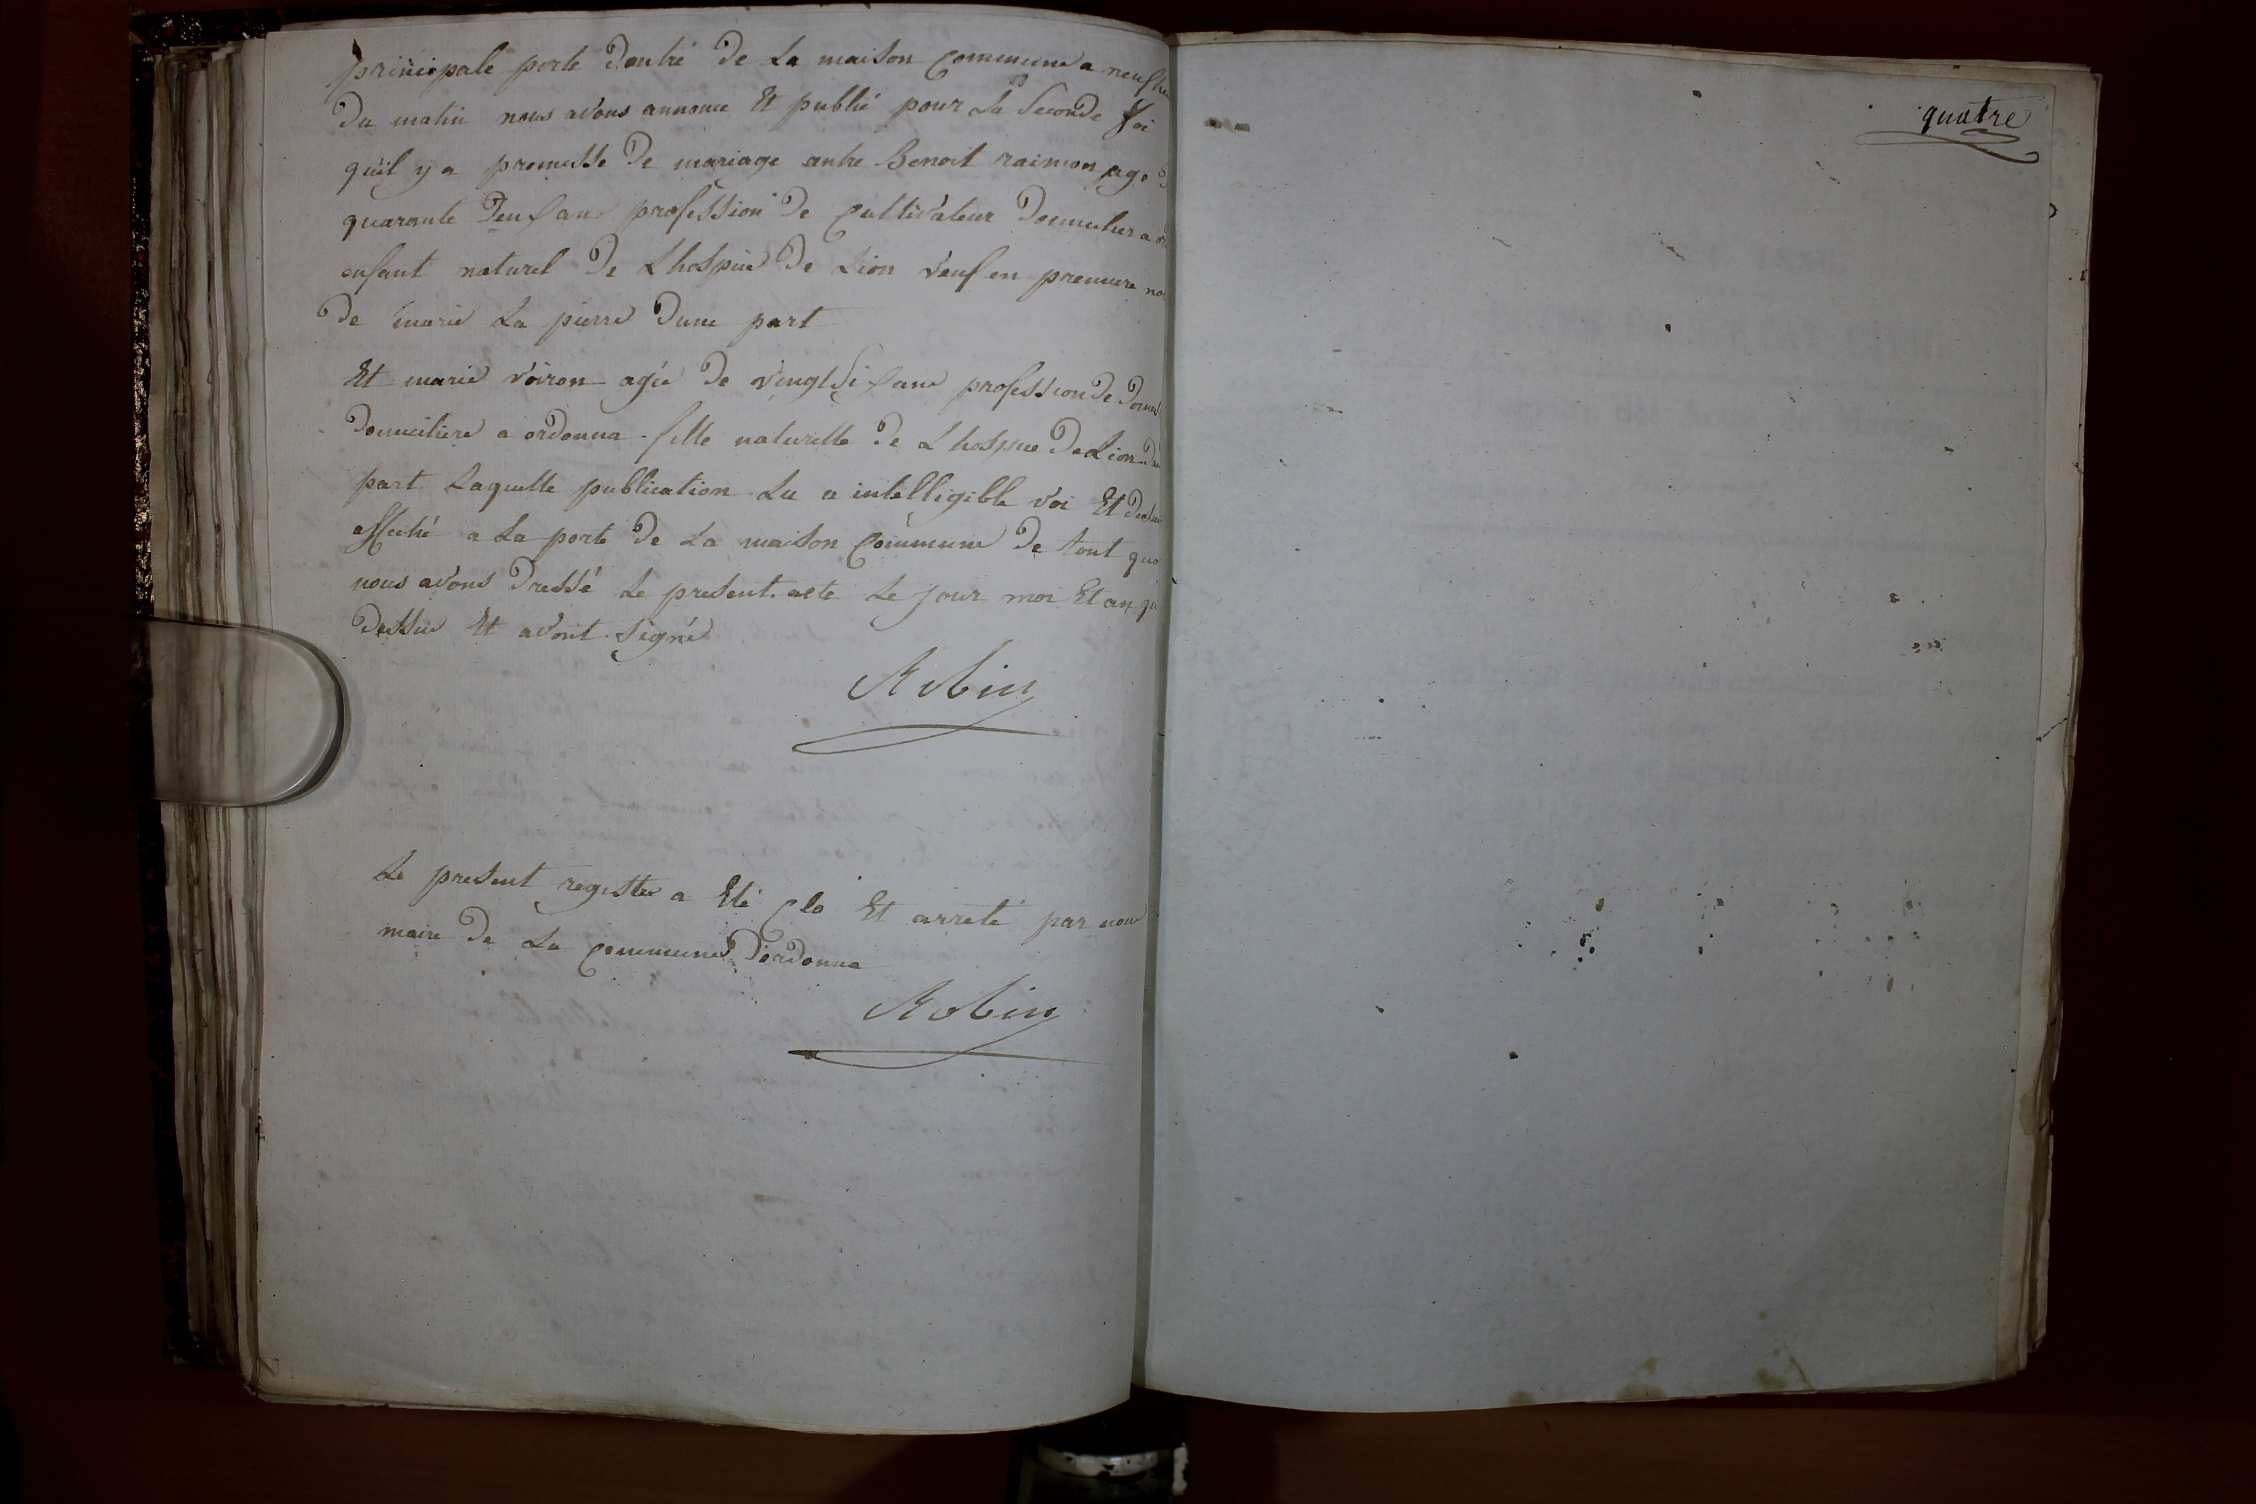 principale porte dentré de La maison Commune a neuf heu
du matin nous avons annonce Et publié pour La Seconde foi
quil y a promesse de mariage antre Benoit raimon age d
quarante deuf ans profession de Cultivateur domicilier a or
enfant naturel de Lhospice de Lion veuf en premiere no
de marie La pierre dune part
Et marie voiron agée de vingt Sif ans profession de domes
domiciliere a ordonna fille naturelle de Lhospice de Lion dau
part Laquelle publication Lu a intelligible voi Et
affiché a La porte de La maison Commune de tout quoi
nous avons dressé Le present acte Le jour moi Et an que
dessus Et avont signé
Robin
Le present registre a Eté Clo Et arreté par nous
maire de La Commune dordonna
Robin
quatre